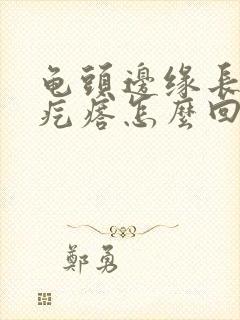 龟頭邊缘長
疙瘩怎麼回
鄭勇